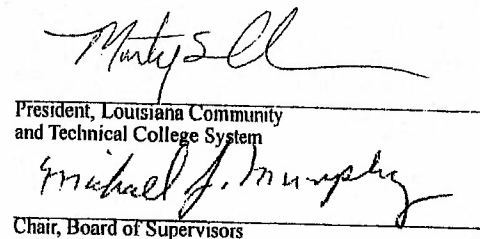 Marty S
President, Louisiana Community
and Technical College System
Michael J. Murphy
Chair, Board of Supervisors